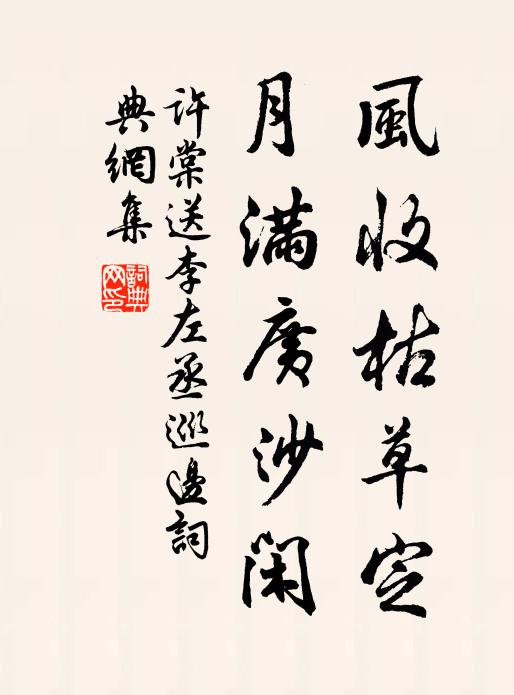 風收枯草定
月滿廣沙閑
許棠送李左丞巡邊詞
典網集
詞典
网印